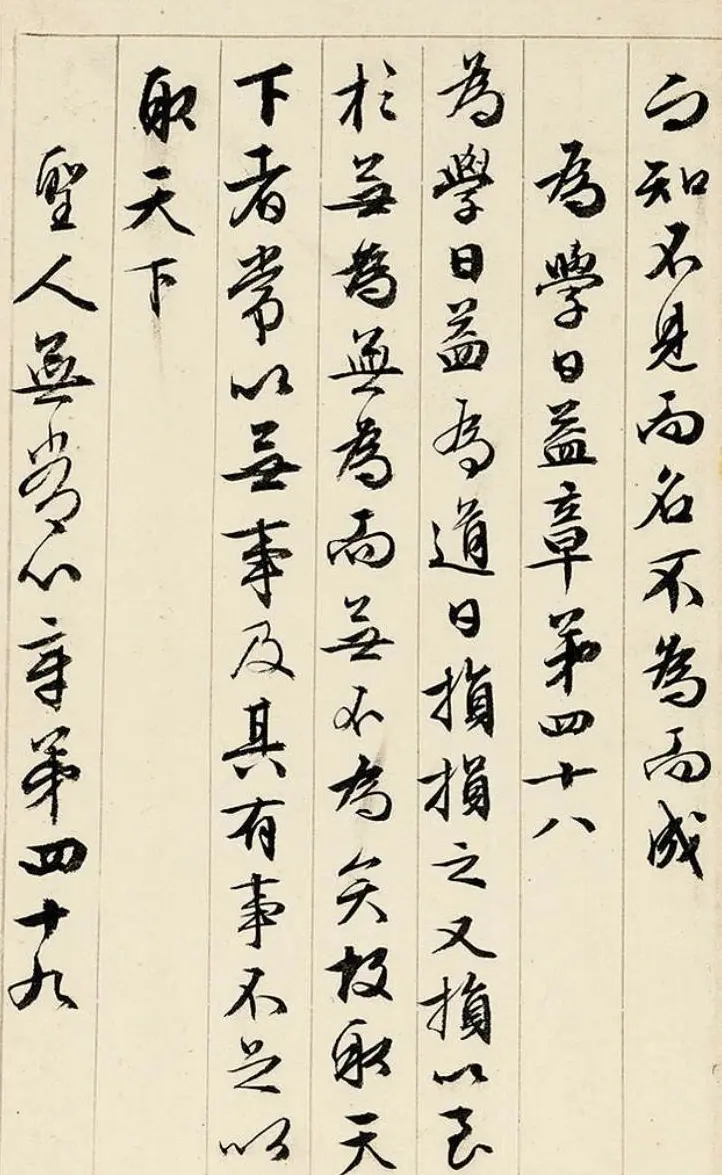 而知不見而名不為而成
為學日益章第四十八
為學日益為道日損損之又損以至
於無為無為而無不為矣故取天
下者常以無事及其有事不足以
取天下
聖人無常心章第四十九